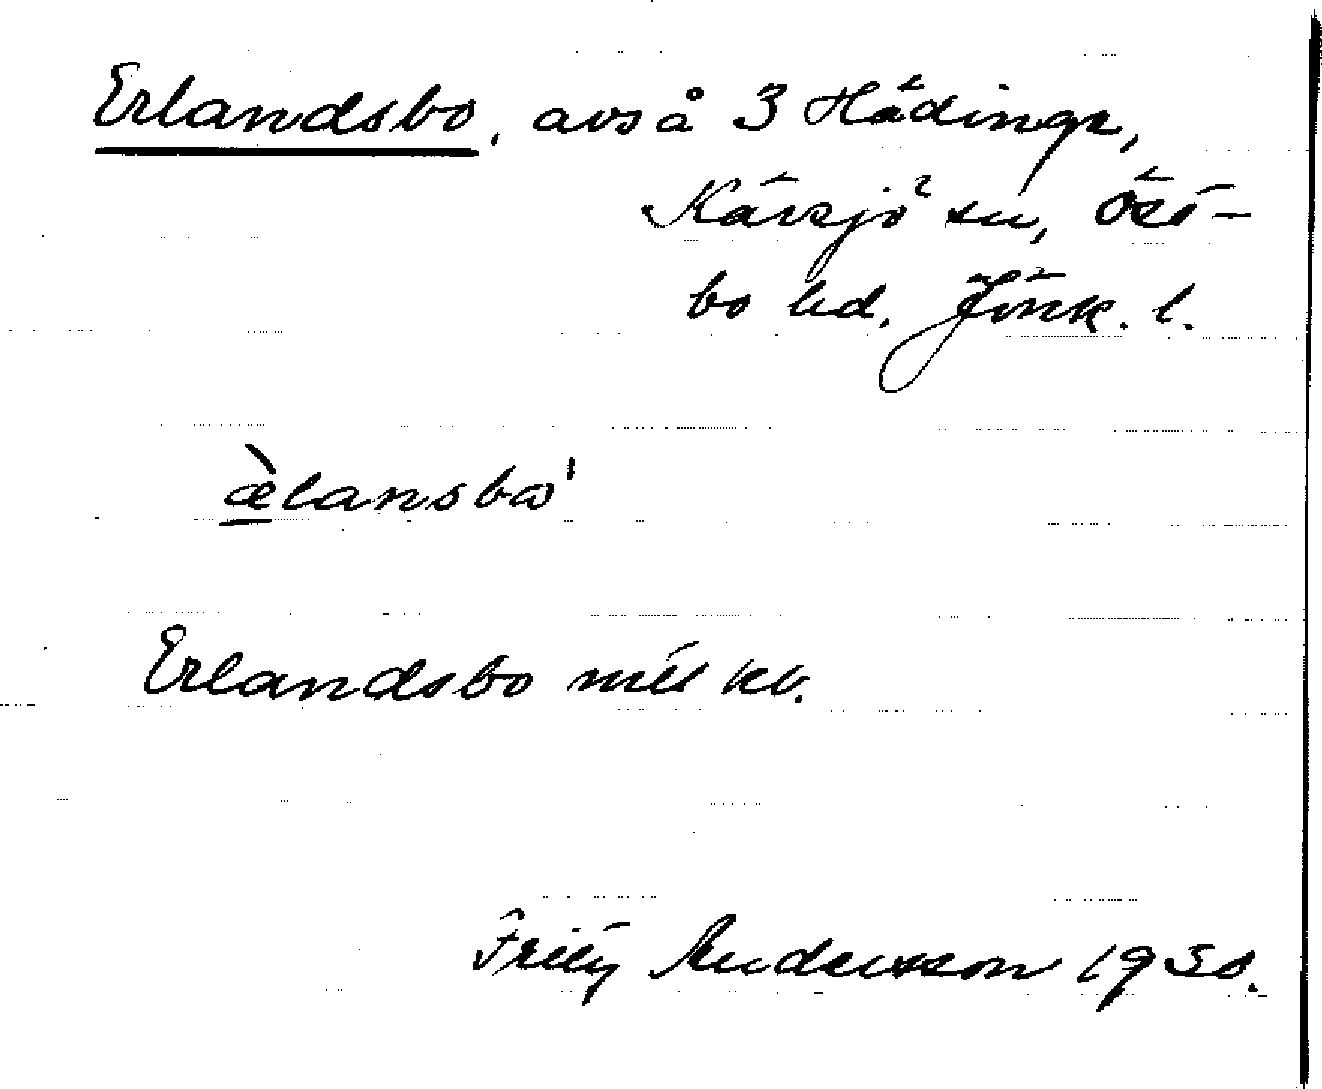 Erlandsbo, avs å 3 Hädinge,
Kävsjö sn, Öst-
bo hd, Jönk. l.
æ̀lansbo'
Erlandsbo mtl kb.
Fritz Andersson 1930.